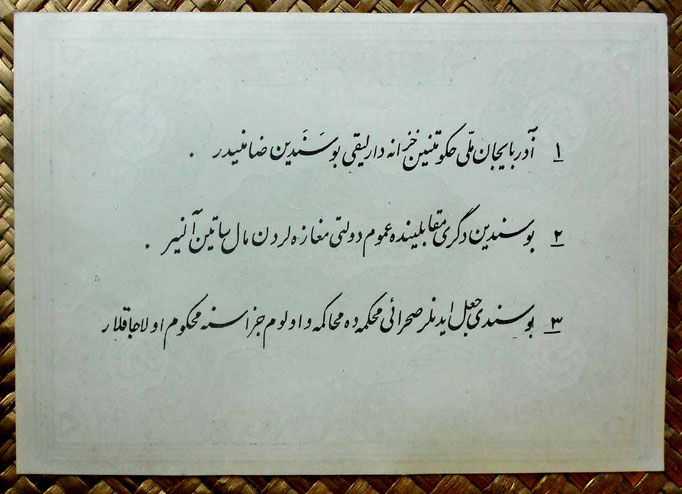 ۱ آذربایجان ملّی حکومتینین خزانه دارلیقی بو سَنَدین ضامنیدر .
۲ بو سندین دگری مقابلینده عموم دولتی مغازه لردن مال ساتین آلنیر .
۳ بو سندی جعل ایدنلر صحرائی محکمه ده محاکمه و اولوم جزاسنه محکوم اولاجاقلار